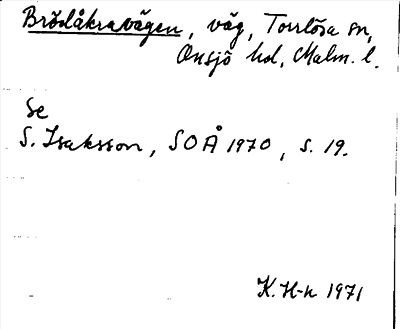 Brödåkravägen, väg, Torrlösa sn,
Onsjö hd, Malm. l.
Se
S. Isaksson, SOÅ 1970, s. 19.
K. H-n 1971